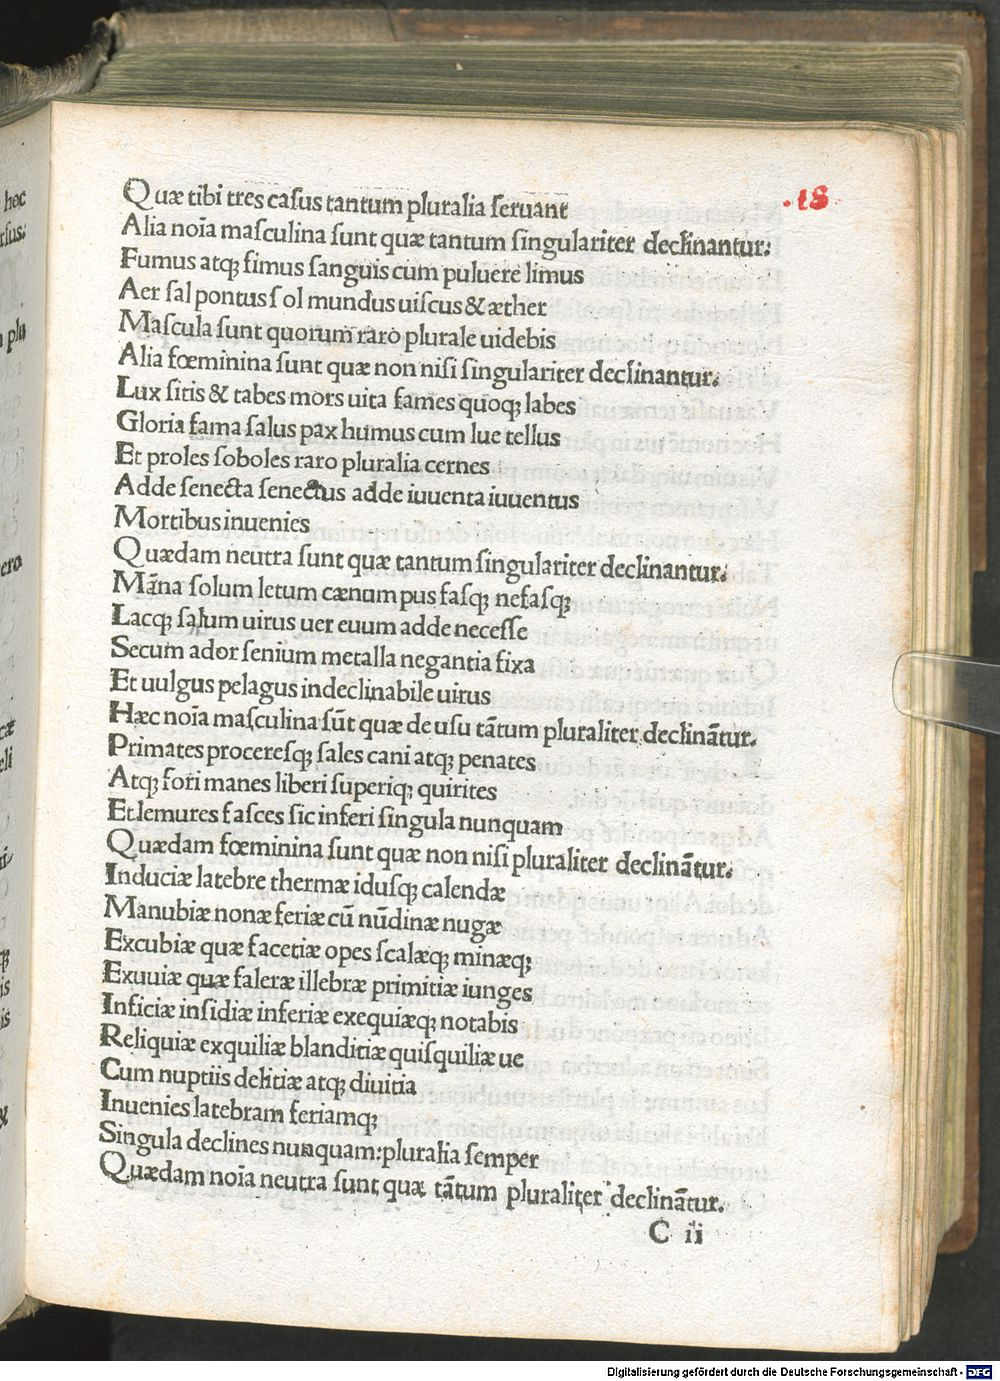 Quæ tibi tres casus tantum pluralia seruant
.18
Alia noīa masculina sunt quæ tantum singulariter declinantur:
Fumus atqꝫ fimus sanguis cum puluere limus
Aer sal pontus sol mundus uiscus & æther
Mascula sunt quorum raro plurale uidebis
Alia fœminina sunt quæ non nisi singulariter declinantur:
Lux sitis & tabes mors uita fames quoqꝫ labes
Gloria fama salus pax humus cum lue tellus
Et proles soboles raro pluralia cernes
Adde senecta senectus adde iuuenta iuuentus
Mortibus inuenies
Quædam neutra sunt quæ tantum singulariter declinantur:
Māna solum letum cænum pus fasqꝫ nefasqꝫ
Lacqꝫ salum uirus uer euum adde necesse
Secum ador senium metalla negantia fixa
Et uulgus pelagus indeclinabile uirus
Hæc noīa masculina sūt quæ de usu tātum pluraliter declinātur.
Primates proceresqꝫ sales cani atqꝫ penates
Atqꝫ fori manes liberi superiqꝫ quirites
Et lemures fasces sic inferi singula nunquam
Quædam fœminina sunt quæ non nisi pluraliter declinātur:
Induciæ latebre thermæ idusqꝫ calendæ
Manubiæ nonæ feriæ cū nūdinæ nugæ
Excubiæ quæ facetiæ opes scalæqꝫ minæqꝫ
Exuuiæ quæ faleræ illebræ primitiæ iunges
Inficiæ insidiæ inferiæ exequiæqꝫ notabis
Reliquiæ exquiliæ blanditiæ quisquiliæ ue
Cum nuptiis delitiæ atqꝫ diuitia
Inuenies latebram feriamqꝫ
Singula declines nunquam: pluralia semper
Quædam noīa neutra sunt quæ tātum pluraliter declinātur.
C ii
Digitalisierung gefördert durch die Deutsche Forschungsgemeinschaft - DFG